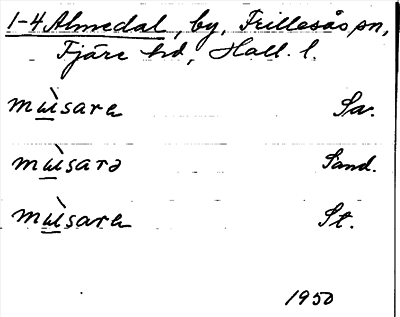 1-4 Almedal, by, Frillesås sn,
Fjäre hd, Hall. l.
mùsara Sa.
mùsarə Sand.
mùsara St.
1950